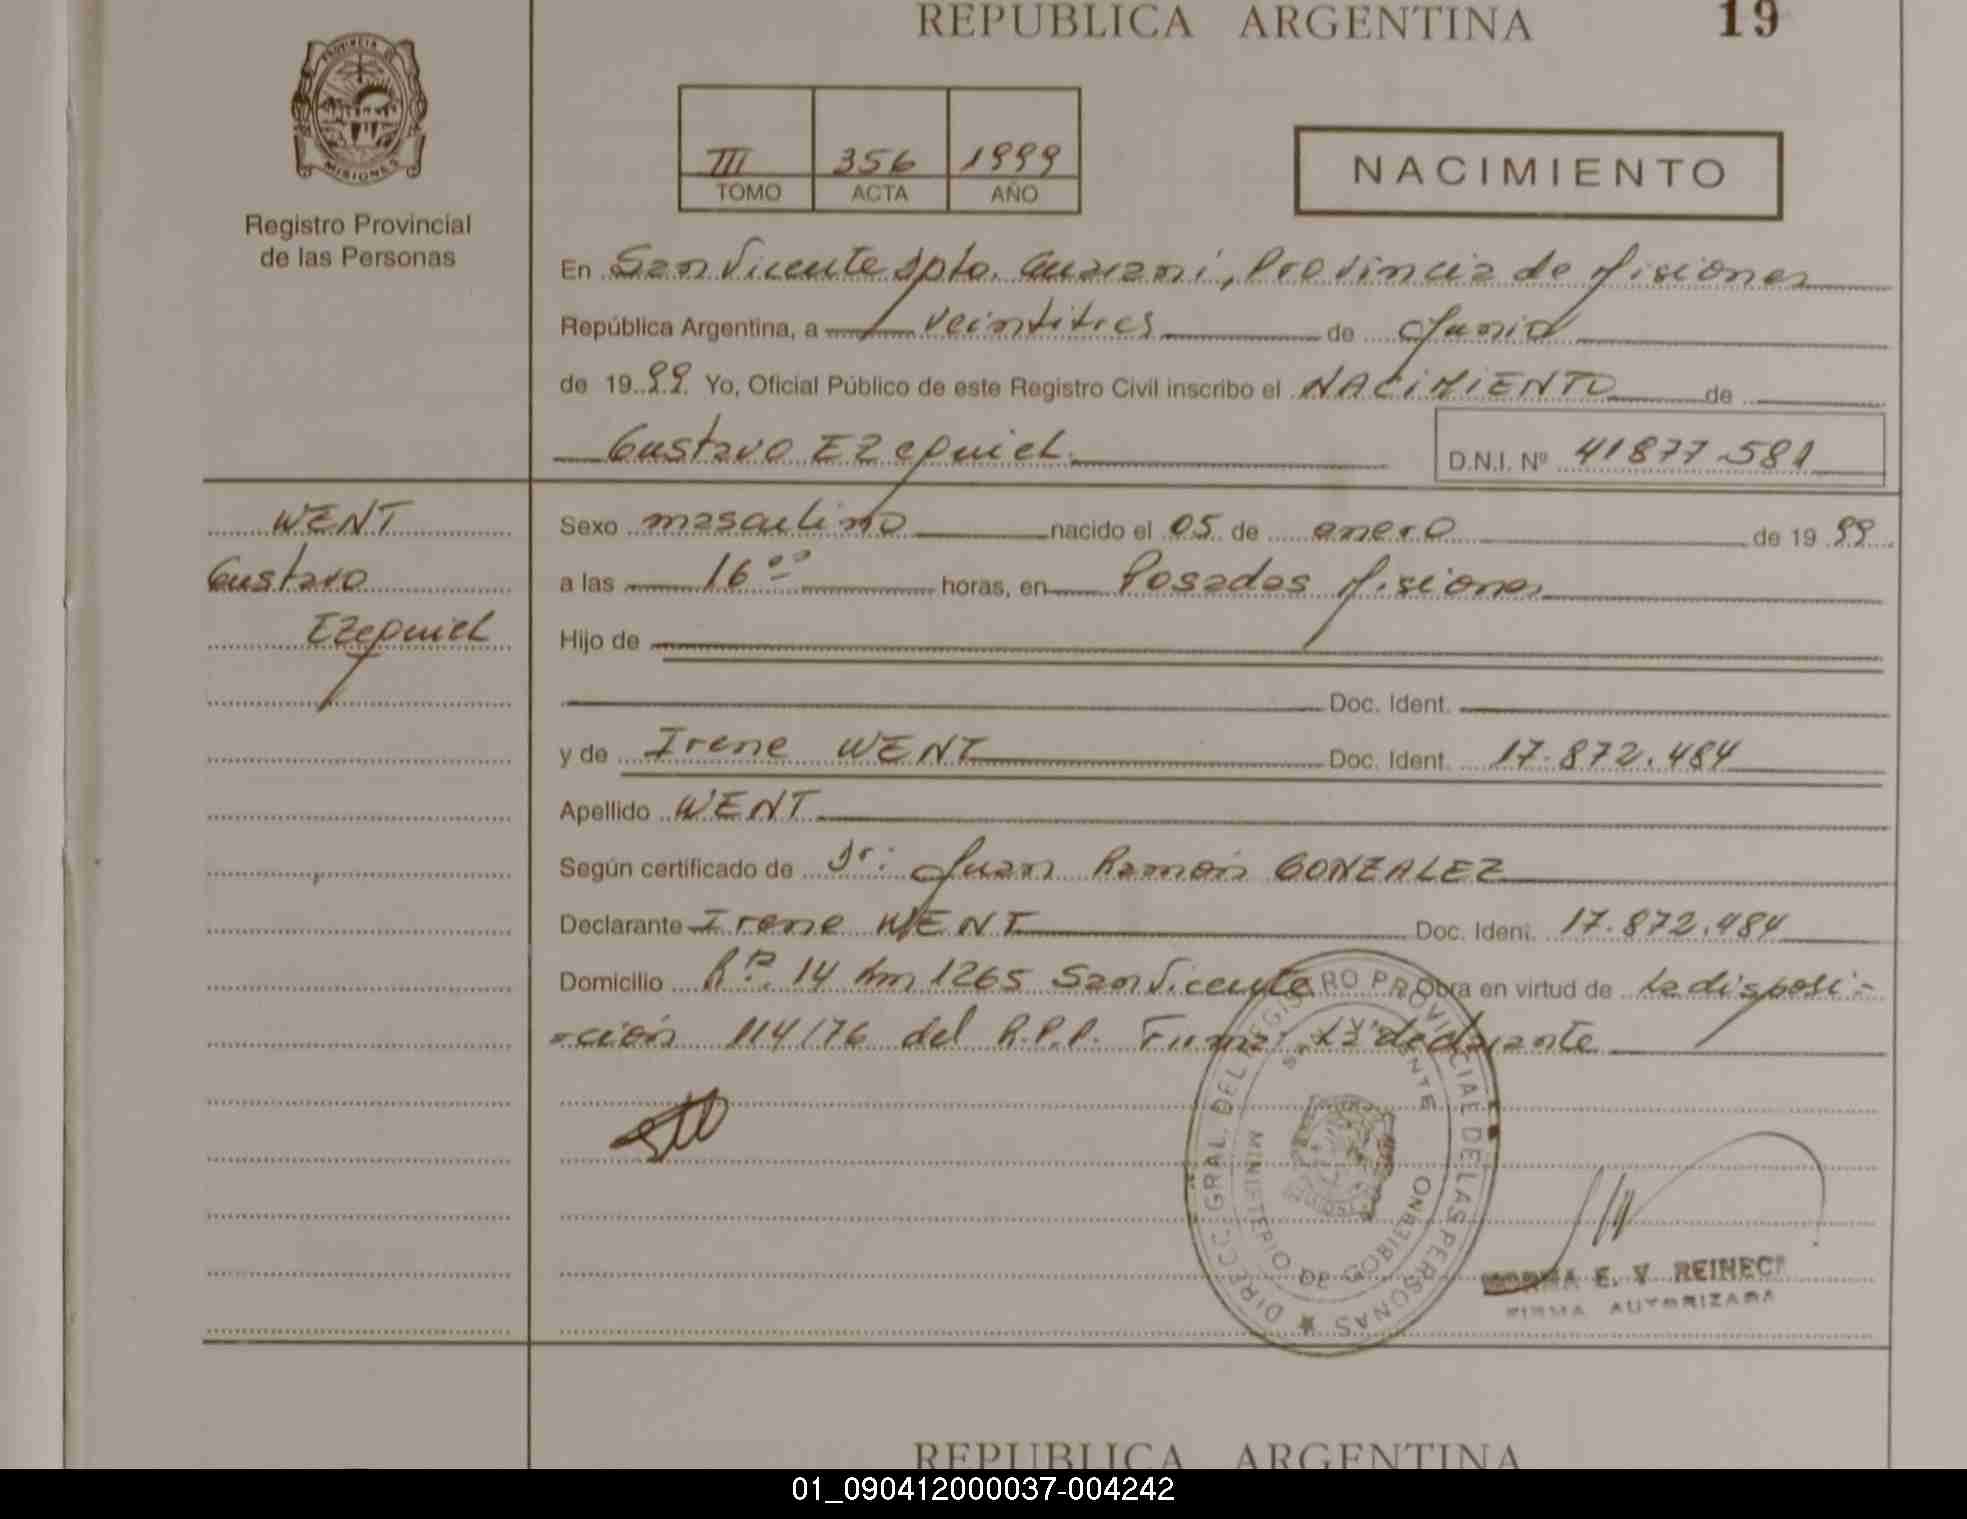 REPUBLICA ARGENTINA
19
PROVINCIA DE
MISIONES
Registro Provincial
de las Personas
III 356 1999
TOMO ACTA AÑO
NACIMIENTO
En San Vicente Dpto. Guaraní, Provincia de Misiones
República Argentina, a veintitres de Junio
de 1999 Yo, Oficial Público de este Registro Civil inscribo el NACIMIENTO de
Gustavo EZequiel
D.N.I. Nº 41877.581
WENT
Gustavo
EZequiel
Sexo masculino nacido el 05 de enero de 1999
a las 16⁰⁰ horas, en Posadas Misiones
Hijo de
Doc. Ident.
y de Irene WENT Doc. Ident. 17.872.484
Apellido WENT
Según certificado de Dr: Juan Ramón GONZALEZ
Declarante Irene WENT Doc. Ident. 17.872.484
Domicilio Rta. 14 km 1265 San Vicente Obra en virtud de La disposi-
-ción 114/76 del R.P.P. Firma: La declarante
DIRECC. GRAL. DEL REGISTRO PROVINCIAL DE LAS PERSONAS
SAN VICENTE
MINISTERIO DE GOBIERNO
NORMA E. V. REINECK
FIRMA AUTORIZADA
REPUBLICA ARGENTINA
01_090412000037-004242